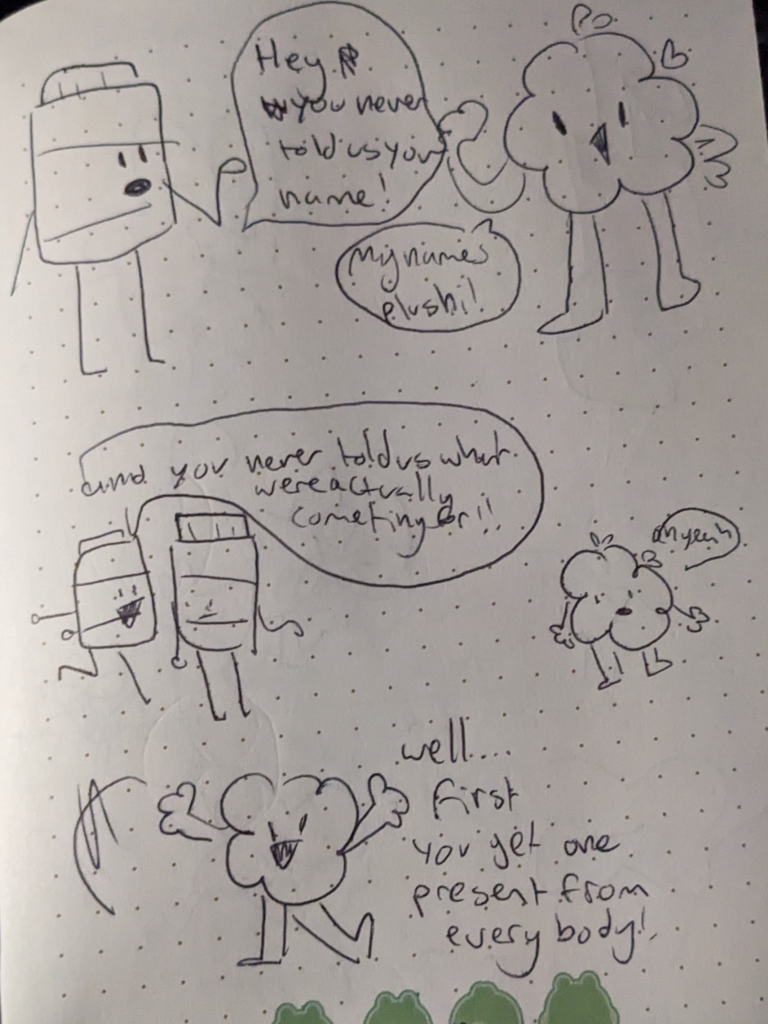 Hey
you never
told us your
name!
My names
plushi!
and you never told us what
were actually
competing for!!
oh yeah
well....
first
you get one
present from
every body!